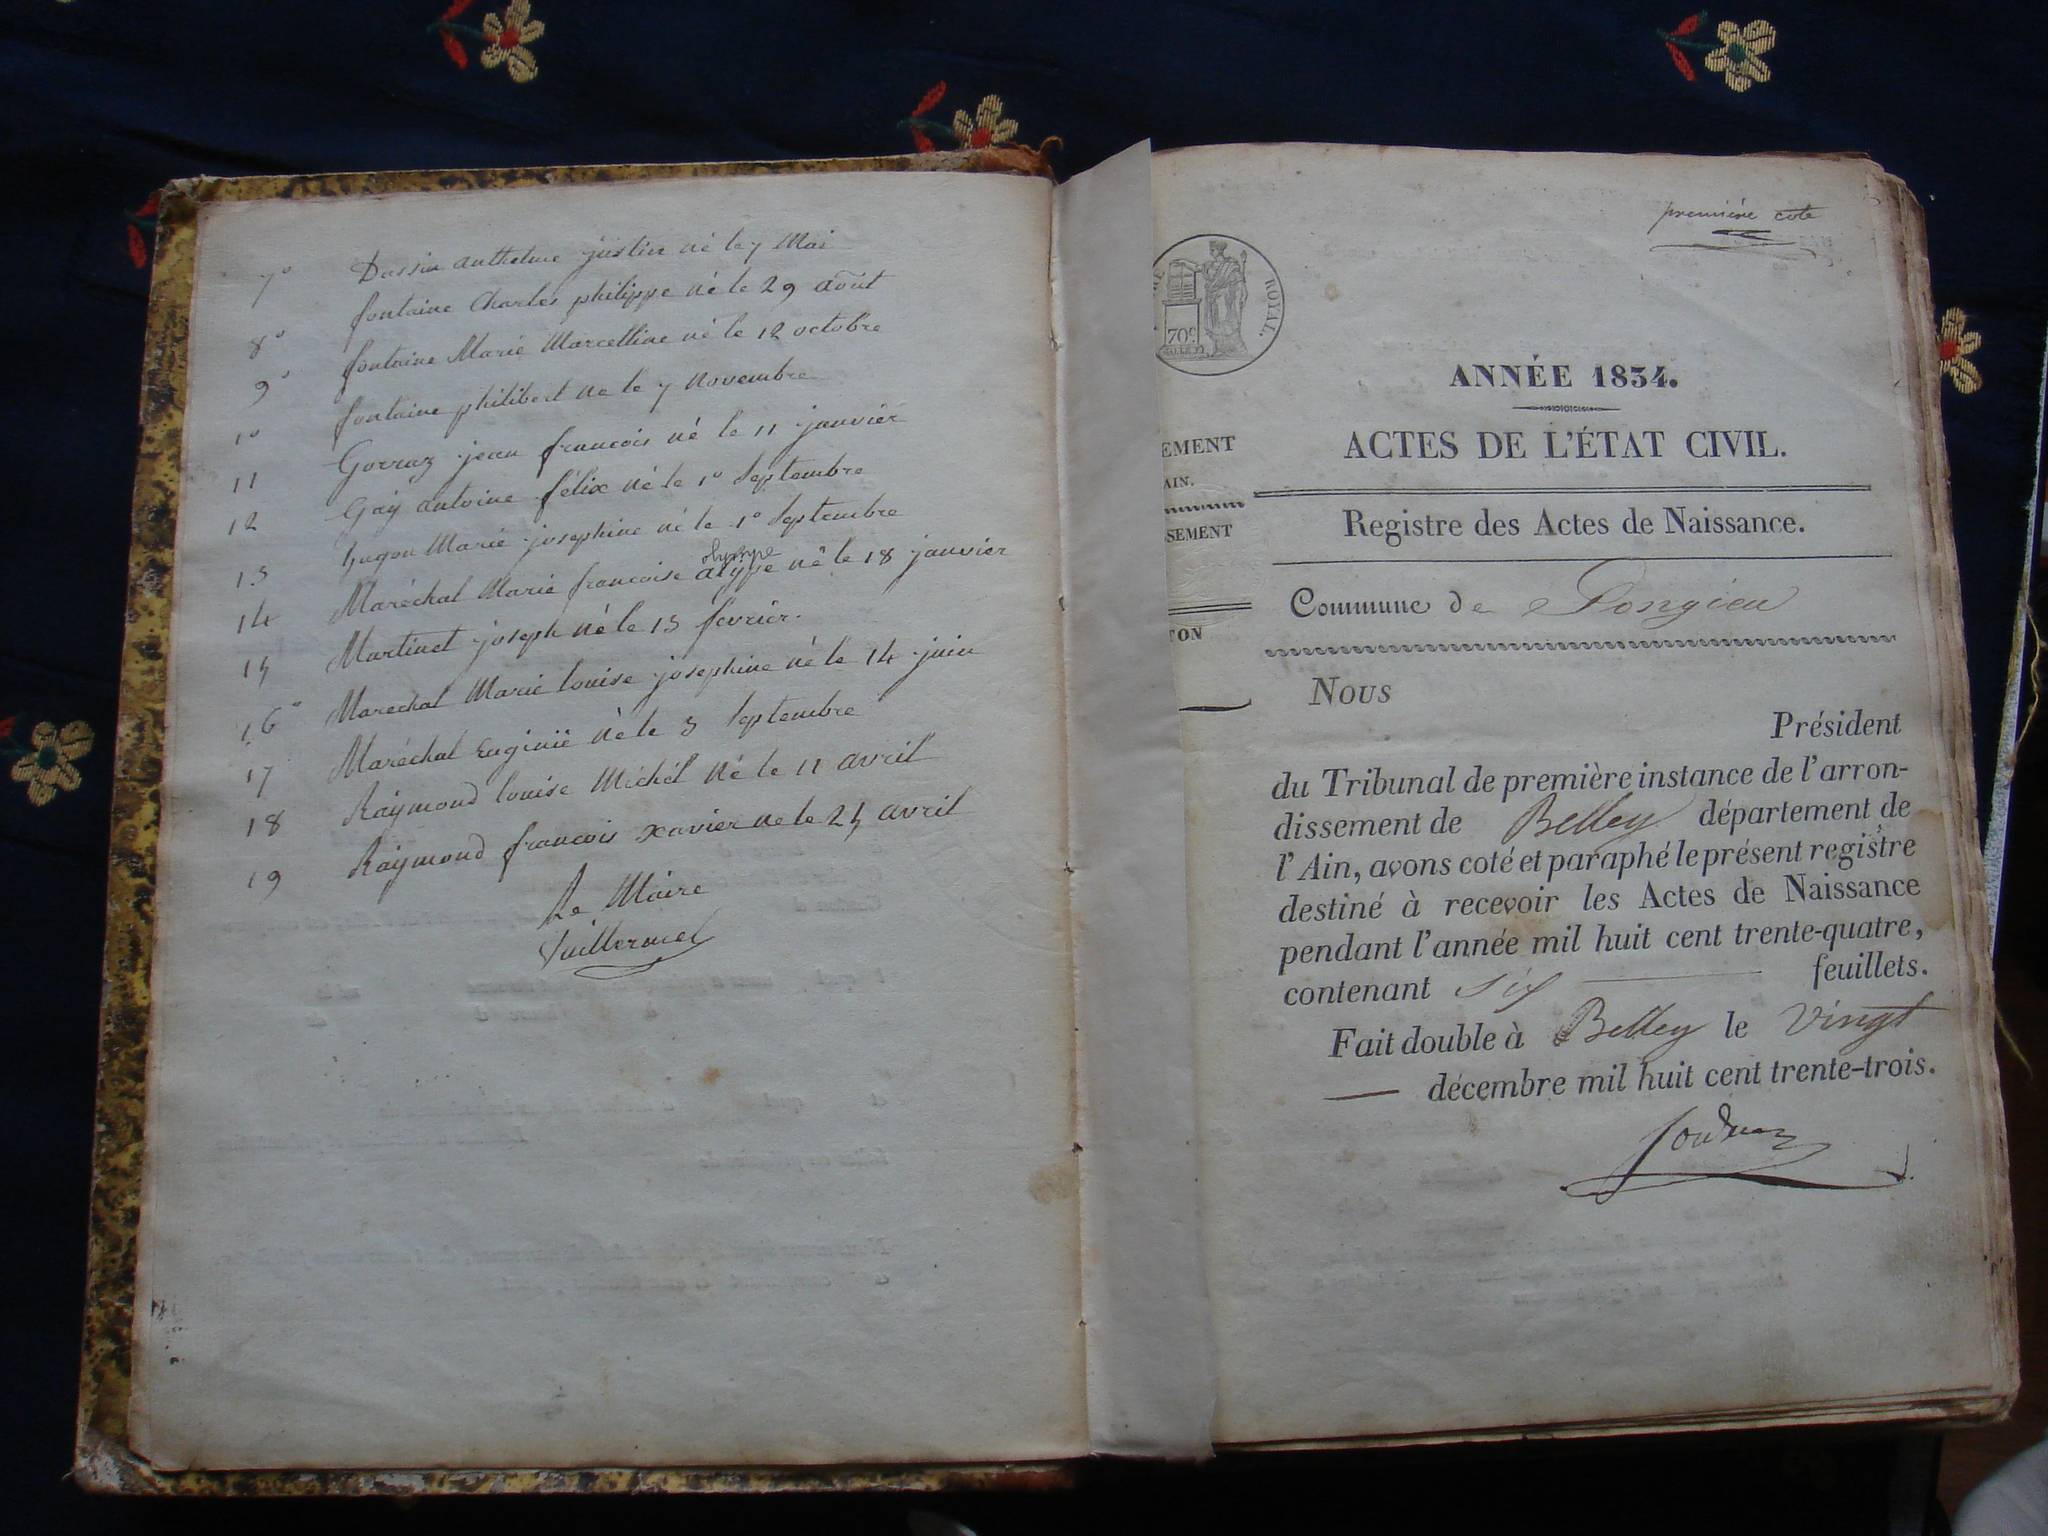 7° Dussin anthelme justin né le 7 Mai
8° fontaine Charles philippe né le 29 août
9° fontaine Marie Marcelline né le 12 octobre
10 fontaine philibert né le 7 novembre
11 Gorraz jean francois né le 11 janvier
12 Gay antoine félix né le 1° Septembre
13 hugon Marie josephine né le 1° Septembre
olympe
14 Maréchal Marie francoise né le 18 janvier
15 Martinet joseph né le 15 fevrier.
16° Maréchal Marie louise josephine né le 14 juin
17 Maréchal Euginie né le 5 Septembre
18 Raymond louise Michel né le 11 avril
19 Raymond francois xavier né le 25 avril
Le Maire
Vuillermet
première cote
ROYAL.
70c
ANNÉE 1834.
ACTES DE L'ÉTAT CIVIL.
EMENT
AIN.
SSEMENT
TON
Registre des Actes de Naissance.
Commune de Pongieu
Nous
Président
du Tribunal de première instance de l'arron-
dissement de Belley département de
l'Ain, avons coté et paraphé le présent registre
destiné à recevoir les Actes de Naissance
pendant l'année mil huit cent trente-quatre,
contenant six feuillets.
Fait double à Belley le vingt
décembre mil huit cent trente-trois.